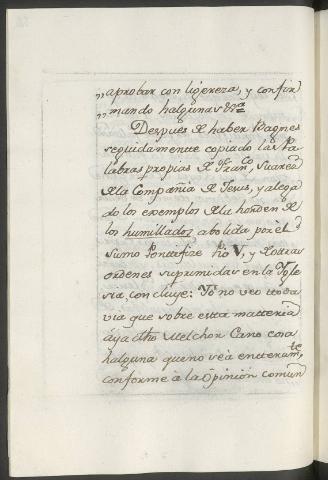 „aprobar con ligereza, y confir
„mando halgunas &rª
Despues de haber Bagnes
seguidamente copiado las Pa
labras propias de Franco Suarez
de la Compañia de Jesus, y alega
do los exemplos de la horden de
los humillados abolida por el
sumo Pontifize Pio V, y de otras
ordenes suprimidas en la Igle
sia, concluye: Yo no veo toda
via que sobre esta matteria
aya dho Melchor Cano cosa
halguna que no vea entteramte
conforme à la opinion comun